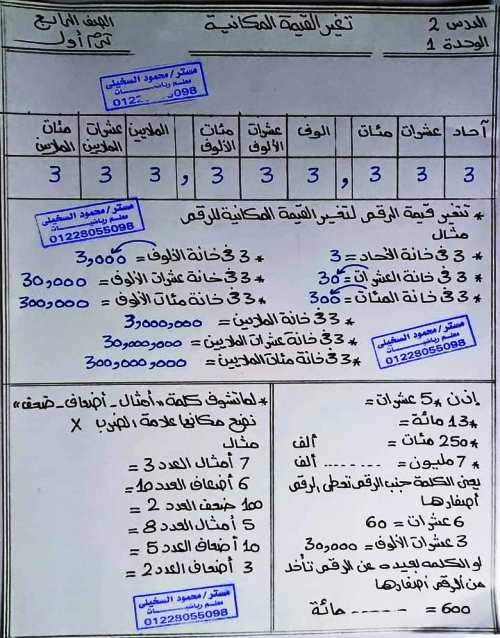 الدرس 2
الوحدة 1
تغير القيمة المكانية
الصف الرابع
ترم أول
مستر/محمود السخيلى
معلم رياضيات
آحاد عشرات مئات , الوف عشرات الألوف مئات الألوف , الملايين عشرات الملايين مئات الملايين
3 3 3 , 3 3 3 , 3 3 3
* تتغير قيمة الرقم لتغير القيمة المكانية للرقم
مستر/محمود السخيلى
معلم رياضيات
01228055098
مثال
* 3 فى خانة الآحاد = 3
* 3 فى خانة الألوف = 3,000
* 3 فى خانة العشرات = 30
* 3 فى خانة عشرات الألوف = 30,000
* 3 فى خانة المئات = 300
* 3 فى خانة مئات الألوف = 300,000
* 3 فى خانة الملايين = 3,000,000
* 3 فى خانة عشرات الملايين = 30,000,000
* 3 فى خانة مئات الملايين = 300,000,000
مستر/محمود السخيلى
معلم رياضيات
01228055098
إذن * 5 عشرات =
* 13 مائة =
* 250 مئات = ألف
* 7 مليون = ------ ألف
يعنى الكلمة جنب الرقم تعطى الرقم
أصفارها
6 عشرات = 60
3 عشرات الألوف = 30,000
لو الكلمه بعيده عن الرقم تأخد
من الرقم أصفارها
600 = ------ مائة
* لما تشوف كلمة «أمثال - أضعاف - ضعف»
نضع مكانها علامة الضرب X
مثال
7 أمثال العدد 3 =
6 أضعاف العدد 10 =
100 ضعف العدد 2 =
5 أمثال العدد 8 =
10 أضعاف العدد 5 =
3 أضعاف العدد 2 =
مستر/محمود السخيلى
معلم رياضيات
01228055098